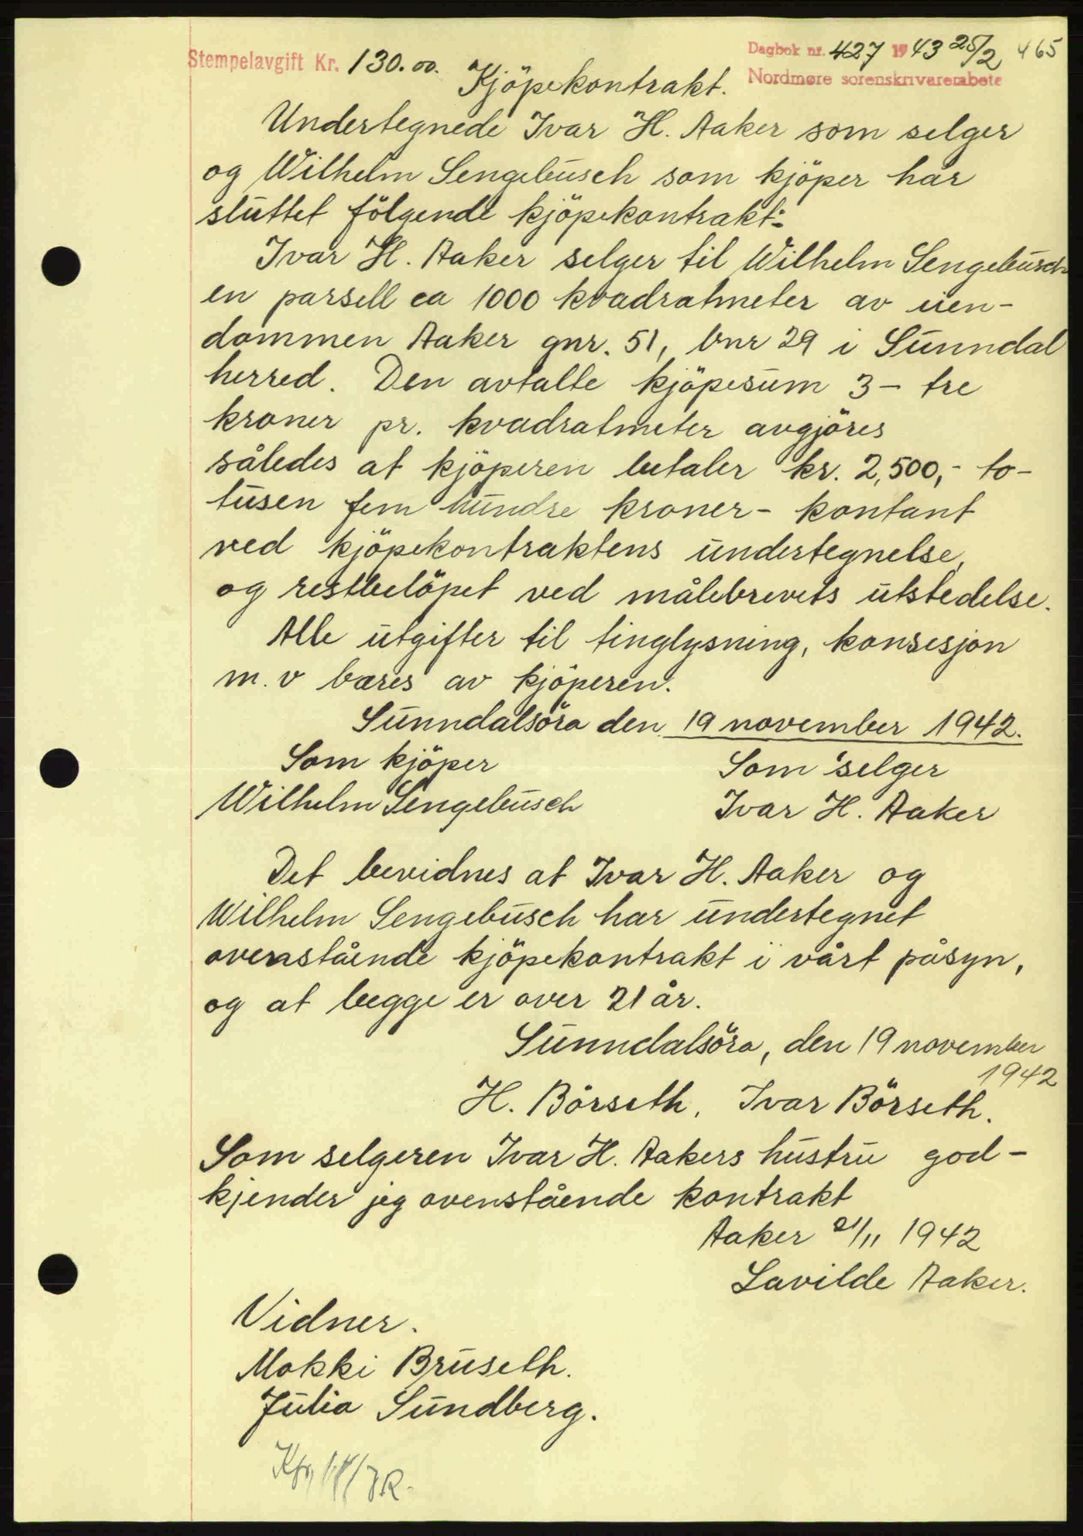 Stempelavgift Kr. 130.00.
Dagbok nr. 427 1943 25/2 465
Nordmøre sorenskrivarembete
Kjöpekontrakt.
Undertegnede Ivar H. Aaker som selger
og Wilhelm Sengebusch som kjöper har
sluttet fölgende kjöpekontrakt:
Ivar H. Aaker selger til Wilhelm Sengebusch
en parsell ca 1000 kvadratmeter av eien-
dommen Aaker gnr. 51, bnr 29 i Sunndal
herred. Den avtalte kjöpesum 3 - tre
kroner pr. kvadratmeter avgjöres
således at kjöperen betaler kr. 2,500,- to-
tusen fem hundre kroner - kontant
ved kjöpekontraktens undertegnelse,
og restbelöpet ved målebrevets utstedelse.
Alle utgifter til tinglysning, konsesjon
m. v bæres av kjöperen.
Sunndalsöra den 19 november 1942.
Som kjöper
Som selger
Wilhelm Sengebusch
Ivar H. Aaker
Det bevidnes at Ivar H. Aaker og
Wilhelm Sengebusch har undertegnet
ovenstående kjöpekontrakt i vårt påsyn,
og at begge er over 21 år.
Sunndalsöra, den 19 november
1942
H. Börseth. Ivar Börseth.
Som selgeren Ivar H. Aakers hustru god-
kjender jeg ovenstående kontrakt
Aaker 21/11 1942
Lavilde Aaker.
Vidner.
Mokki Bruseth.
Julia Sundberg.